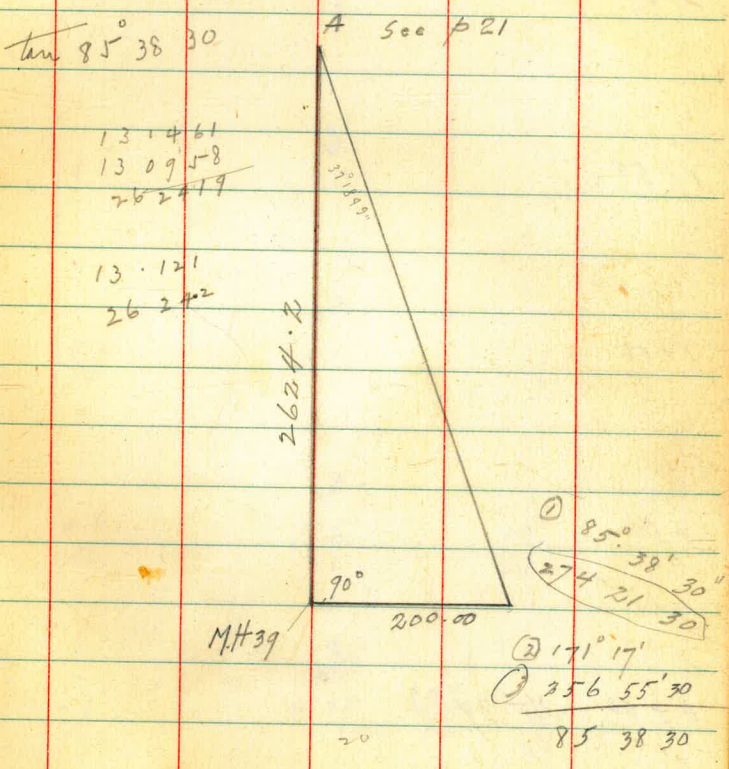 A See p 21
tan 85° 38 30
13 1 4 61
13 0 9 58
26 2 4 19
13 . 121
26 24.2
2624.2
90°
200.00
M.H 39
① 85° 38' 30"
274 21 30
② 171° 17'
③ 356 55' 30
85 38 30
20